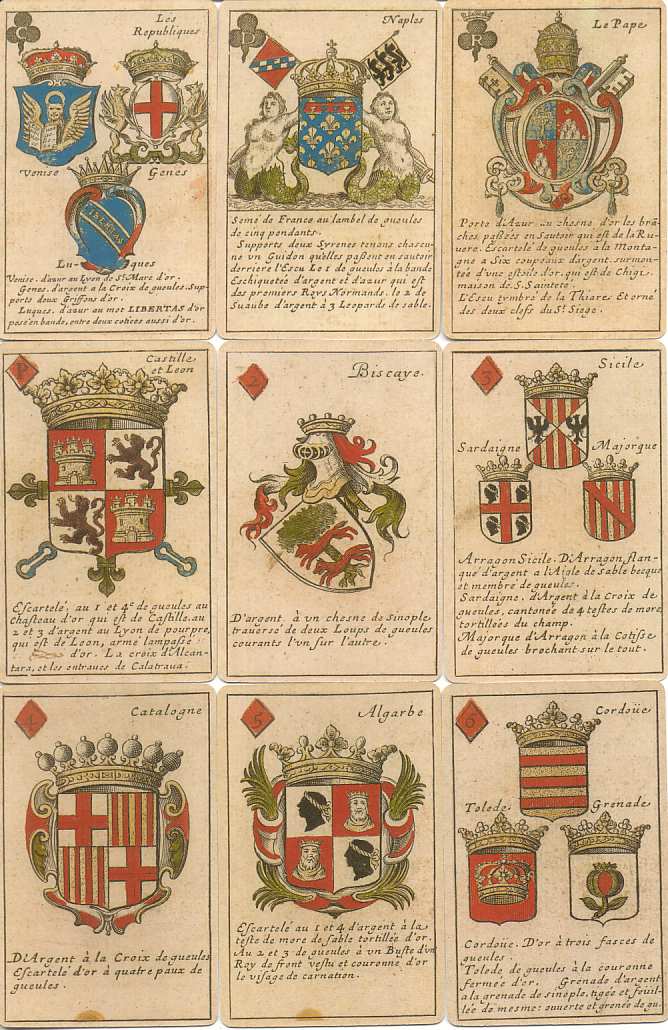 C
Les
Republiques
Venise
Genes
LIBERTAS
Lu-
ques
Venise. d'azur au Lyon de St. Marc d'or.
Genes, d'argent a la Croix de gueules, Sup-
ports deux Griffons d'or.
Luques, d'azur au mot LIBERTAS d'or
posé en bande, entre deux cotices aussi d'or.
P
Naples
Semé de France au lambel de gueules
de cinq pendants.
Supports deux Syrenes tenans chascu-
ne vn Guidon qu'elles passent en sautoir
derriere l'Escu Le 1 de gueules à la bande
Eschiquetée d'argent et d'azur qui est
des premiers Roys Normands. le 2 de
Suaube d'argent à 3 Leopards de sable.
R
Le Pape
Porte d'Azur au chesne d'or les brã-
ches passées en Sautoir qui est de la Ru-
uere. Escartelé de gueules à la Monta-
gne a Six coupeaux d'argent, surmon-
tée d'vne estoile d'or, qui est de Chigi
maison de S. Sainteté.
L'Escu tymbré de la Thiare et orné
des deux clefs du St. Siege.
P
Castille
et Leon
Escartelé, au 1 et 4e de gueules au
chasteau d'or qui est de Castille, au
2 et 3 d'argent au Lyon de pourpre,
qui est de Leon, armé lampassé
d'or. La croix d'Alcan-
tara, et les entraues de Calatraua.
2
Biscaye.
D'argent à vn chesne de sinople
trauersé de deux Loups de gueules
courants l'vn sur l'autre.
3
Sicile
Sardaigne
Majorque
Arragon Sicile. D'Arragon, flan-
qué d'argent a l'Aigle de sable becqué
et membré de gueules.
Sardaigne, d'Argent à la Croix de
gueules, cantonée de 4 testes de more
tortillées du champ.
Majorque d'Arragon à la Cotisse
de gueules brochant sur le tout.
4
Catalogne
D'Argent à la Croix de gueules
Escartelé d'or à quatre paux de
gueules.
5
Algarbe
Escartelé au 1 et 4 d'argent à la
teste de more de sable tortillée d'or.
Au 2 et 3 de gueules à vn Buste d'vn
Roy de front vestu et couronné d'or
le visage de carnation.
6
Cordoüe
Tolede
Grenade
Cordoüe. D'or à trois fasces de
gueules.
Tolede de gueules à la couronne
fermée d'or. Grenade d'argent
a la grenade de sinople, tigée et feuil-
lée de mesme: ouuerte et grenée de gu.